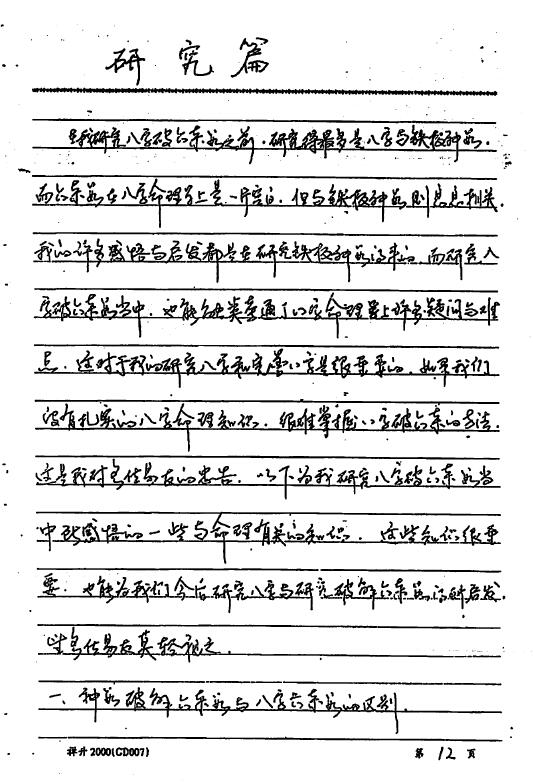 研究篇
在我研究八字破六亲数之前，研究得最多是八字与铁板神数，
而六亲数在八字命理学上是一片空白，但与铁板神数则息息相关，
我的许多感悟与启发都是在研究铁板神数得来的，而研究八
字破六亲数当中，也能触类旁通了八字命理学上许多疑问与难
点，这对于我的研究八字和完善八字是很重要的，如果我们
没有扎实的八字命理知识，很难掌握八字破六亲的方法，
这是我对各位易友的忠告，以下为我研究八字破六亲数当
中所感悟的一些与命理有关的知识，这些知识很重
要，也能为我们今后研究八字与研究破解六亲数得到启发，
各位易友莫轻视之
一、神数破解六亲数与八字六亲数的区别，
祥升2000(CD007)
第 12 页